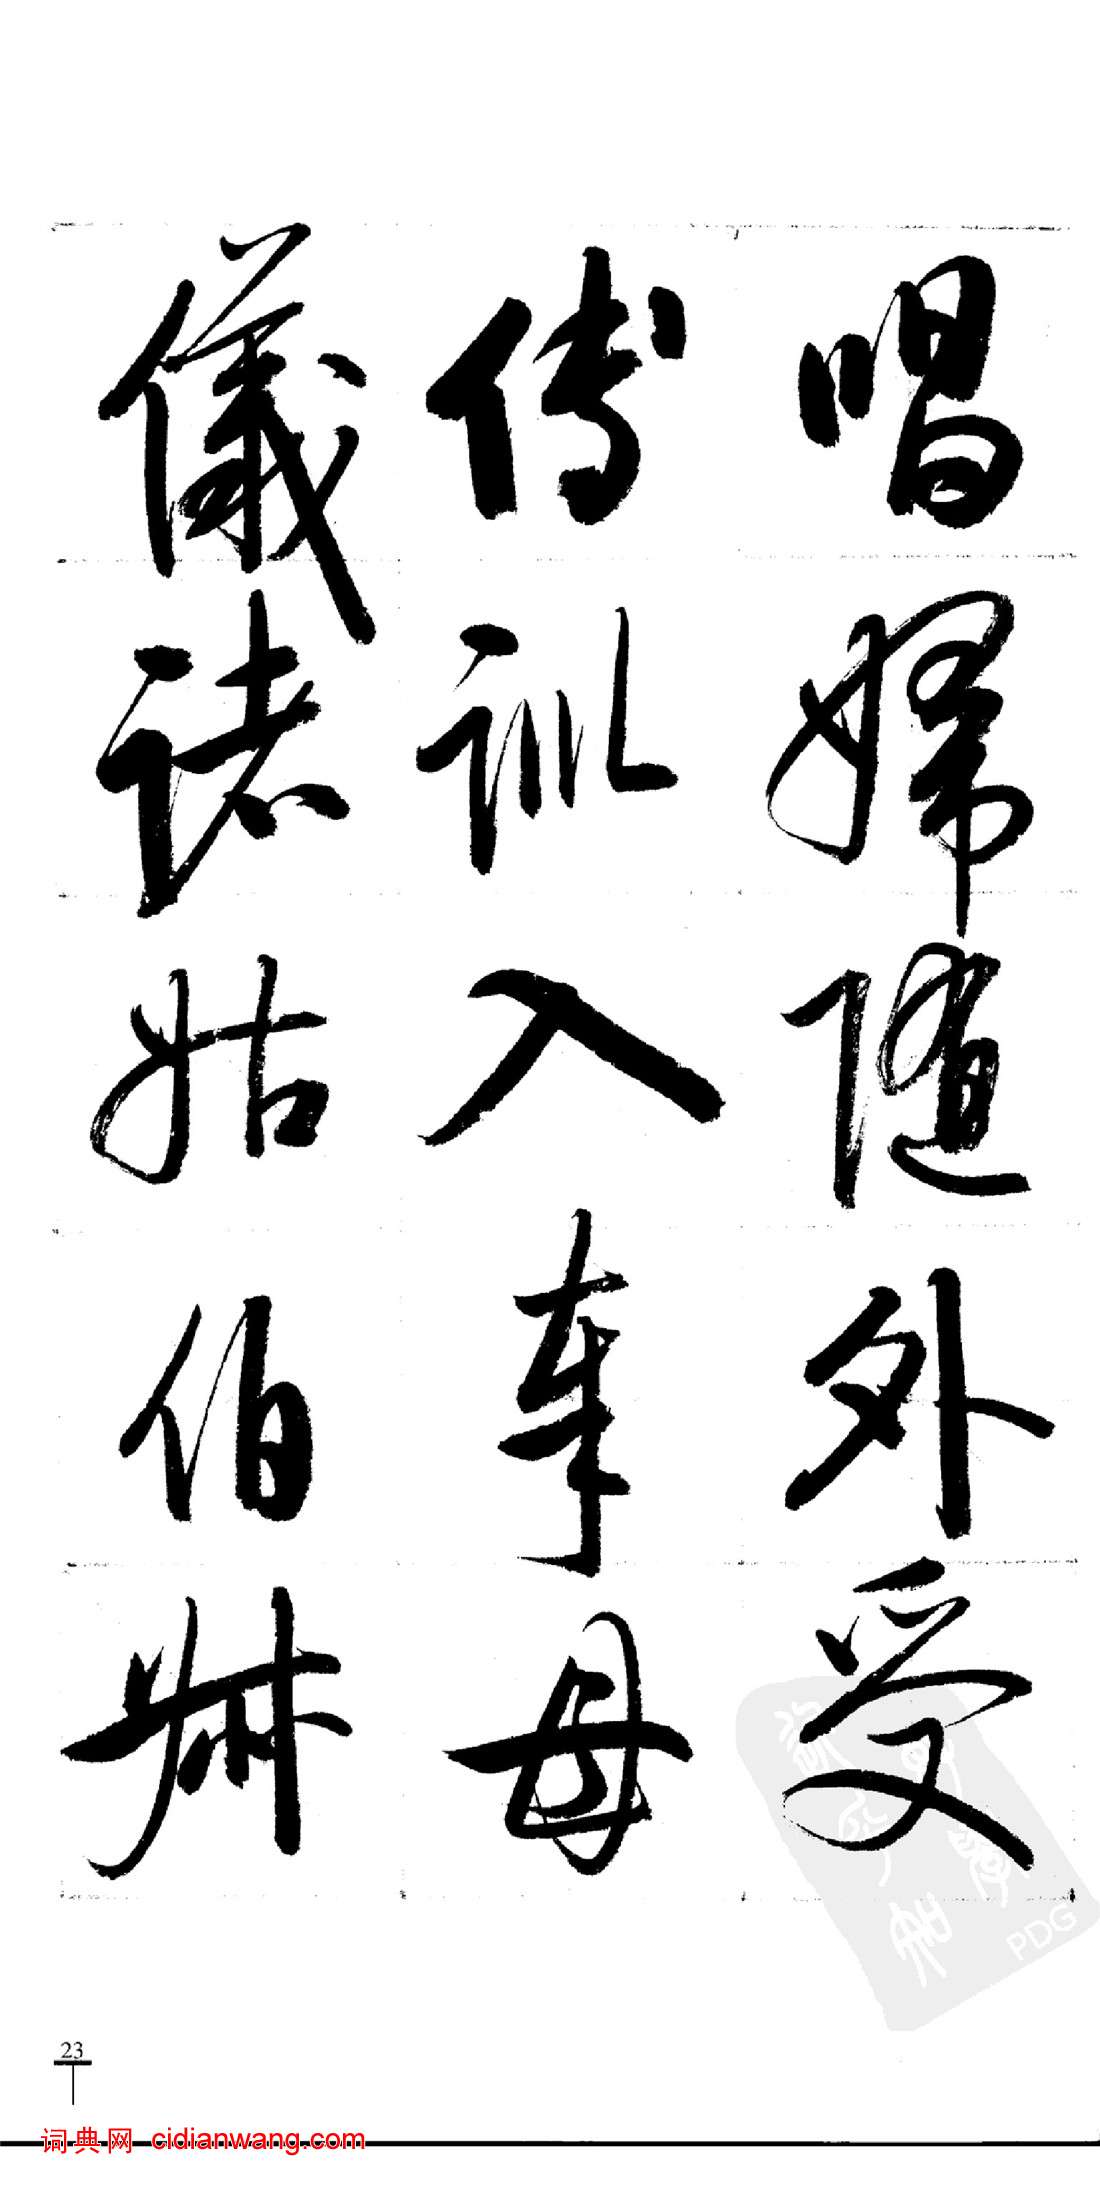 唱婦随外受
傅訓入奉母
儀諸姑伯叔
23
词典网 cidianwang.com
PDG